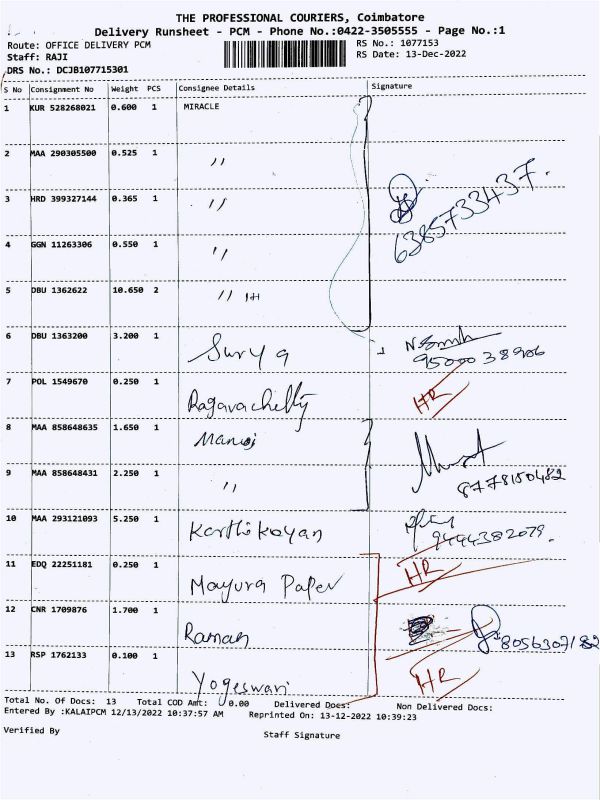 THE PROFESSIONAL COURIERS, Coimbatore
Delivery Runsheet - PCM - Phone No.:0422-3505555 - Page No.:1
Route: OFFICE DELIVERY PCM RS No.: 1077153
Staff: RAJI RS Date: 13-Dec-2022
DRS No.: DCJB107715301
S No Consignment No Weight PCS Consignee Details Signature
1 KUR 528268021 0.600 1 MIRACLE
2 MAA 290305500 0.525 1 ,,
3 HRD 399327144 0.365 1 ,,
6385733437.
4 GGN 11263306 0.550 1 ,,
5 DBU 1362622 10.650 2 ,,
6 DBU 1363200 3.200 1 Surya
9500038906
7 POL 1549670 0.250 1 Ragavachetty HR
8 MAA 858648635 1.650 1 Manoj
9 MAA 858648431 2.250 1 ,, 8778150482
10 MAA 293121093 5.250 1 Karthikayan 9444382079.
11 EDQ 22251181 0.250 1 Mayura Paper HR
12 CNR 1709876 1.700 1 Raman 8056307182
13 RSP 1762133 0.100 1 Yogeswari HR
Total No. Of Docs: 13 Total COD Amt: 0.00 Delivered Docs: Non Delivered Docs:
Entered By :KALAIPCM 12/13/2022 10:37:57 AM Reprinted On: 13-12-2022 10:39:23
Verified By Staff Signature